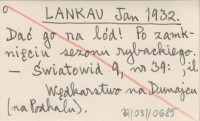 LANKAU Jan 1932.
Dać go na lód! Po zamk-
nięciu sezonu rybackiego.
— Światowid 9, nr 39: , il.
Wędkarstwo na Dunajcu
(na Podhalu).